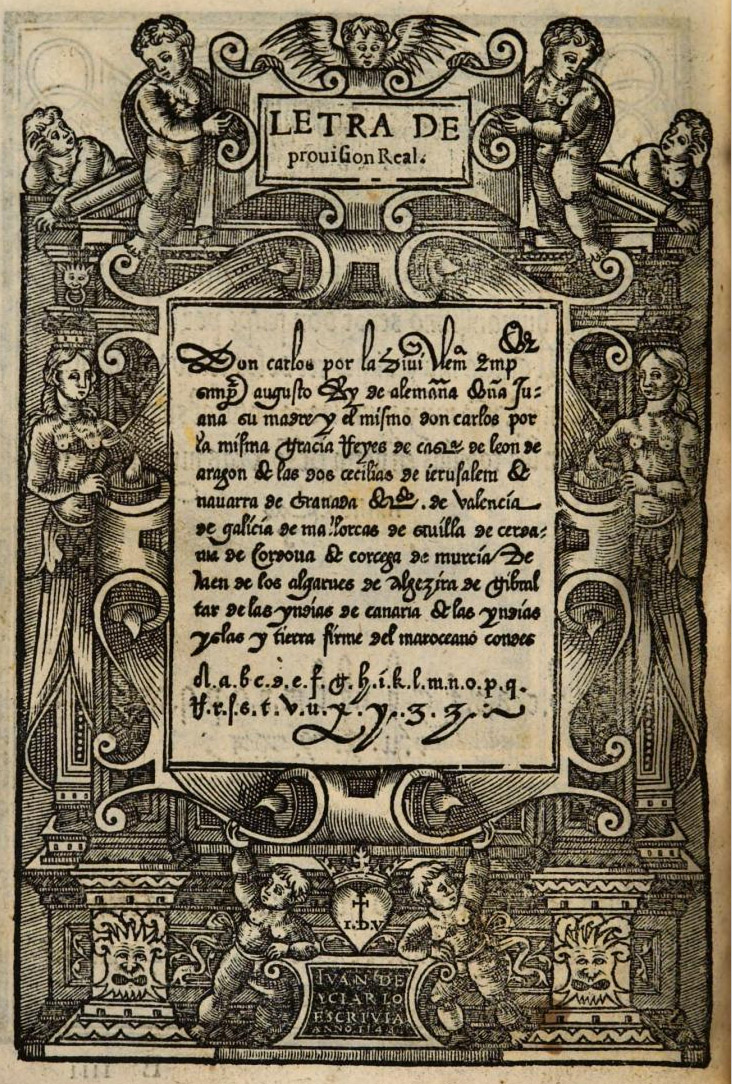 LETRA DE
prouision Real.
Don carlos por la Diui Clem̃ Emp
semp̃ augusto Rey de alemaña Doña Ju-
ana su madre y el mismo don carlos por
la misma gracia Reyes de castª de leon de
aragon de las dos cecilias de ierusalem de
nauarra de Granada de tº. de valencia
de galicia de mallorcas de seuilla de cerda-
nia de Cordoua de corcega de murcia De
Jaen de los algarues de Algezira de Gibral
tar de las yndias de canaria de las yndias
yslas y tierra firme del mar oceano condes
A.a.b.c.d.e.f.g.h.i.k.l.m.n.o.p.q.
R.r.s.s.t.v.u.x.y.3.3.
I.D.V
IVAN DE
YCIAR LO
ESCRIVIA
ANNO